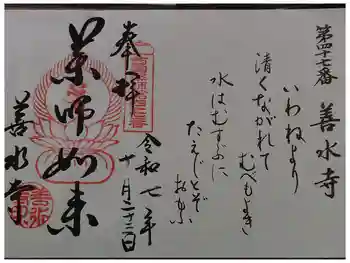 第四十七番 善水寺
いわねより
清くながれて むべもよき
水はむすぶに
たえじとぞ
おもふ
奉拝
令和七年
十月二十二日
薬師如来
善水寺